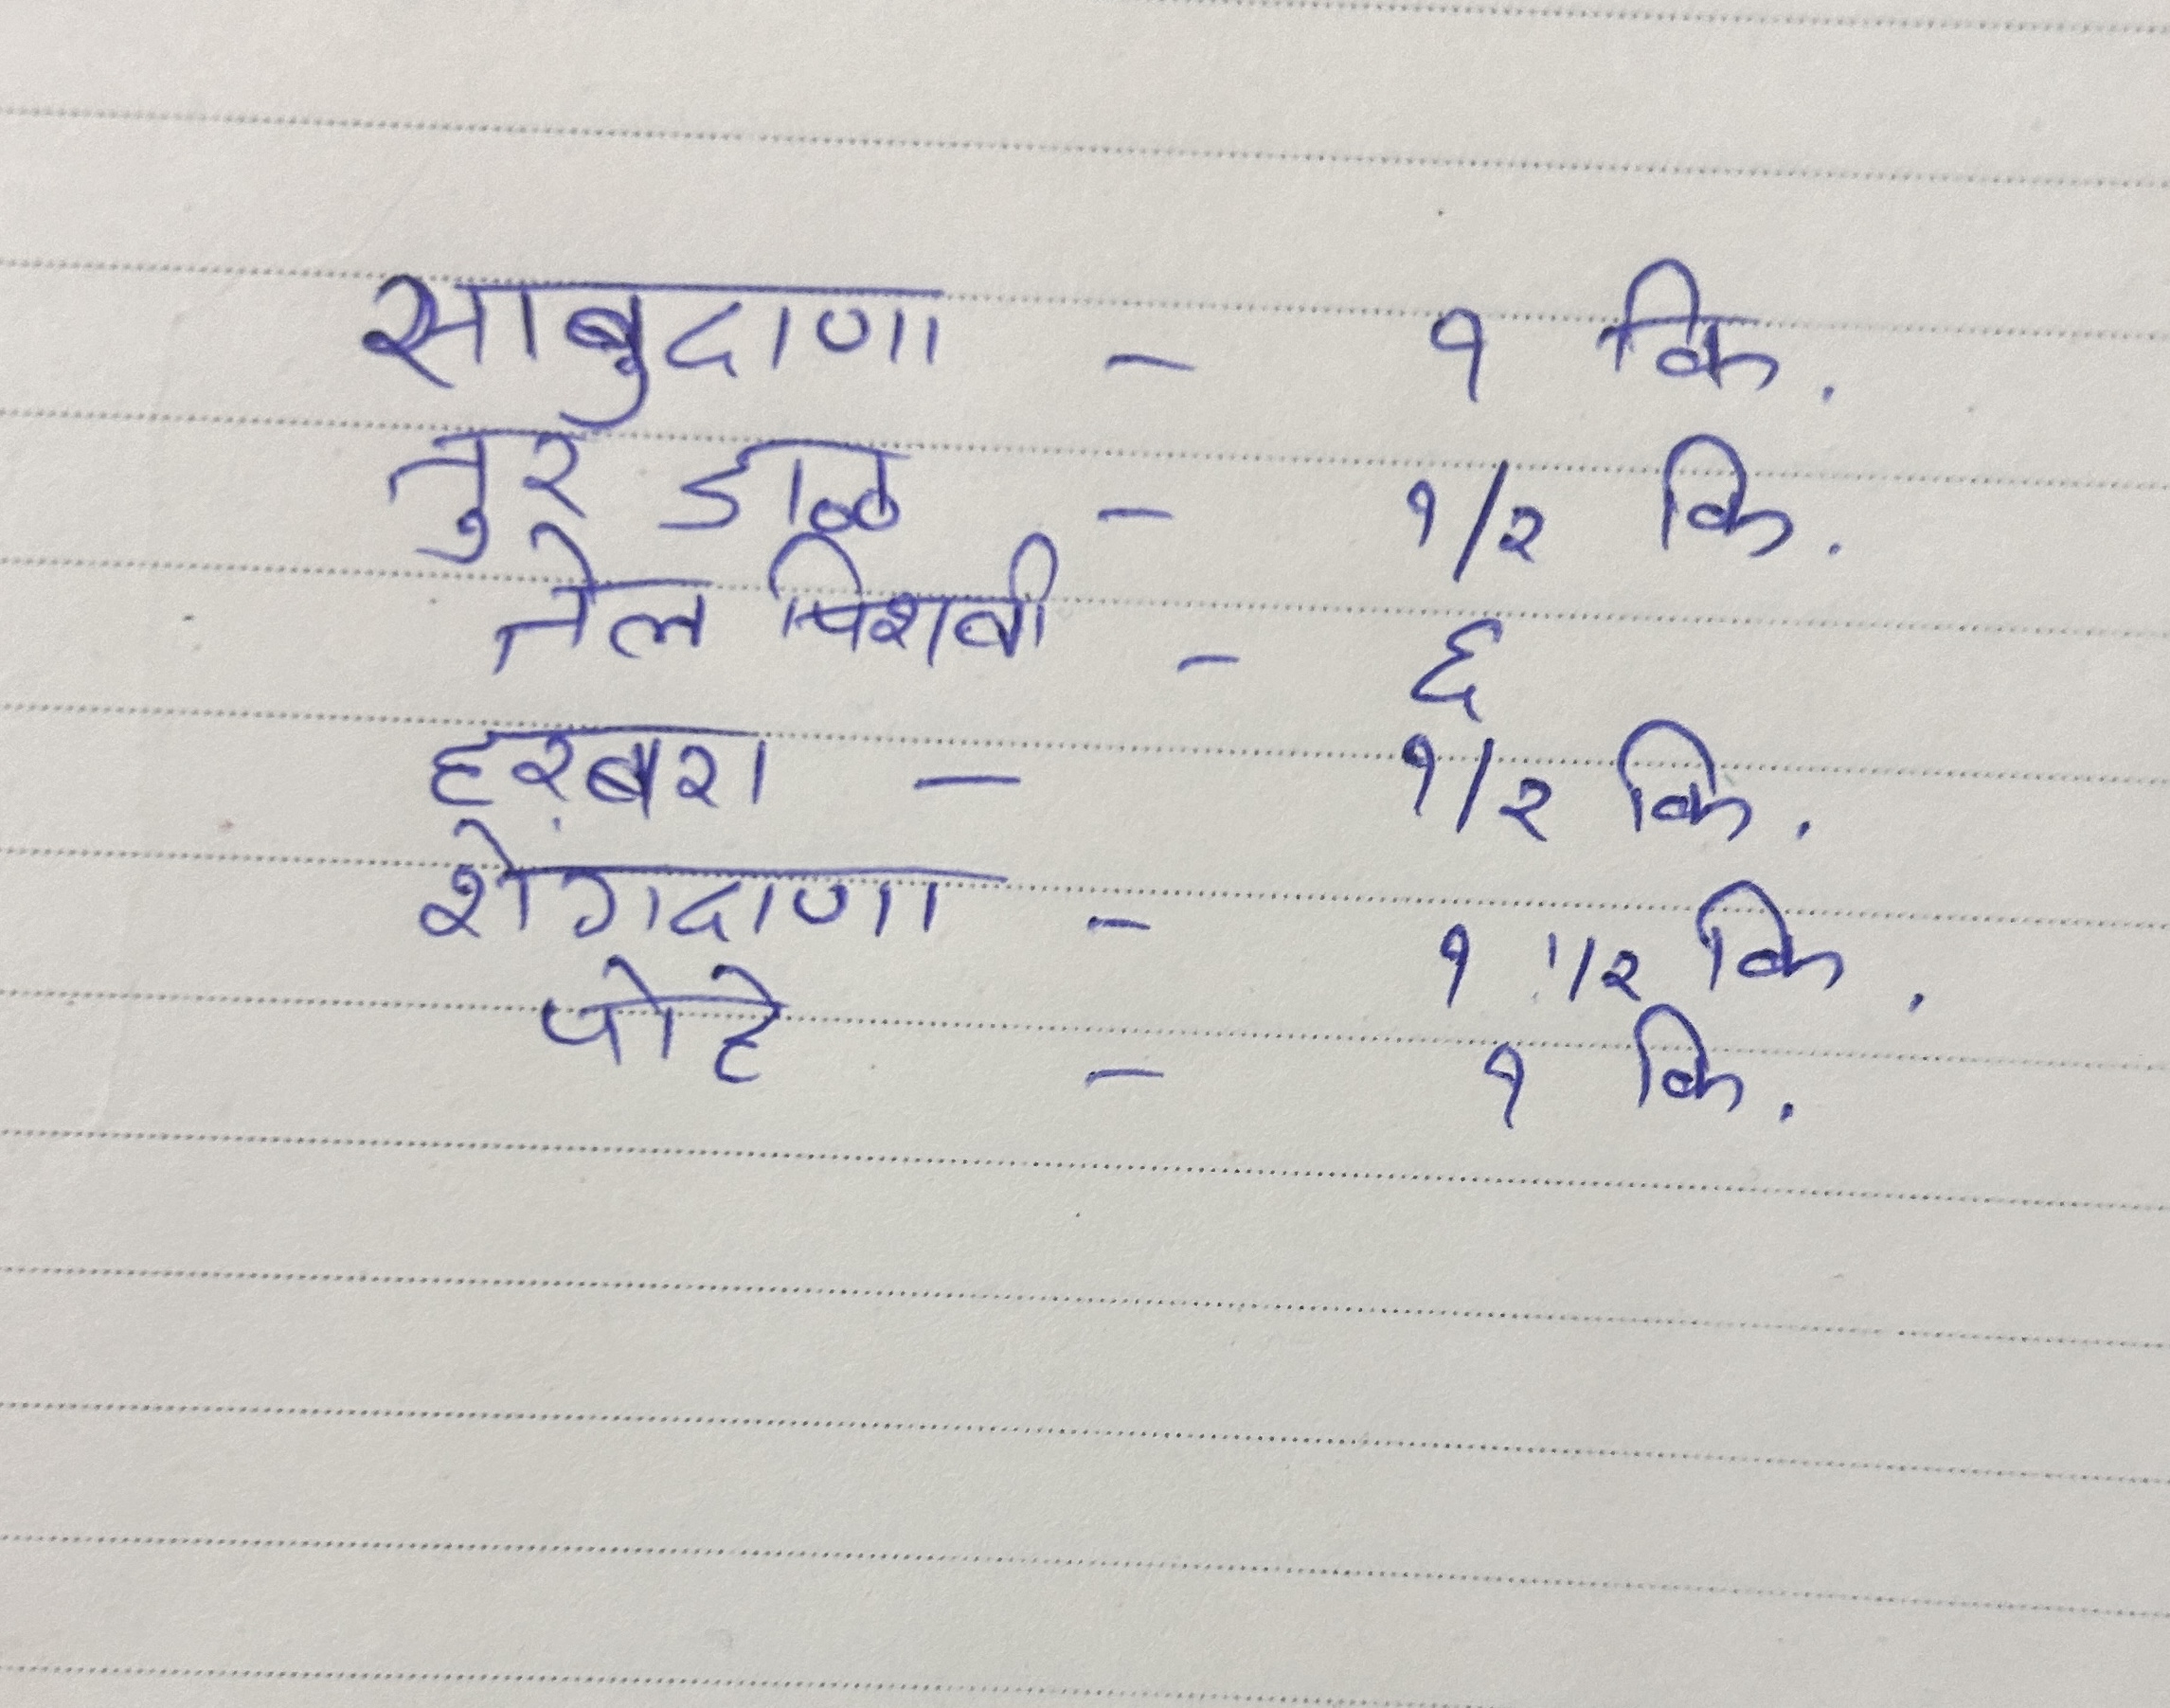 साबुदाणा - १ कि.
तुर डाळ - १/२ कि.
तेल पिशवी - ६
हरबरा - १/२ कि.
शेगदाणा - १ १/२ कि.
पोहे - १ कि.